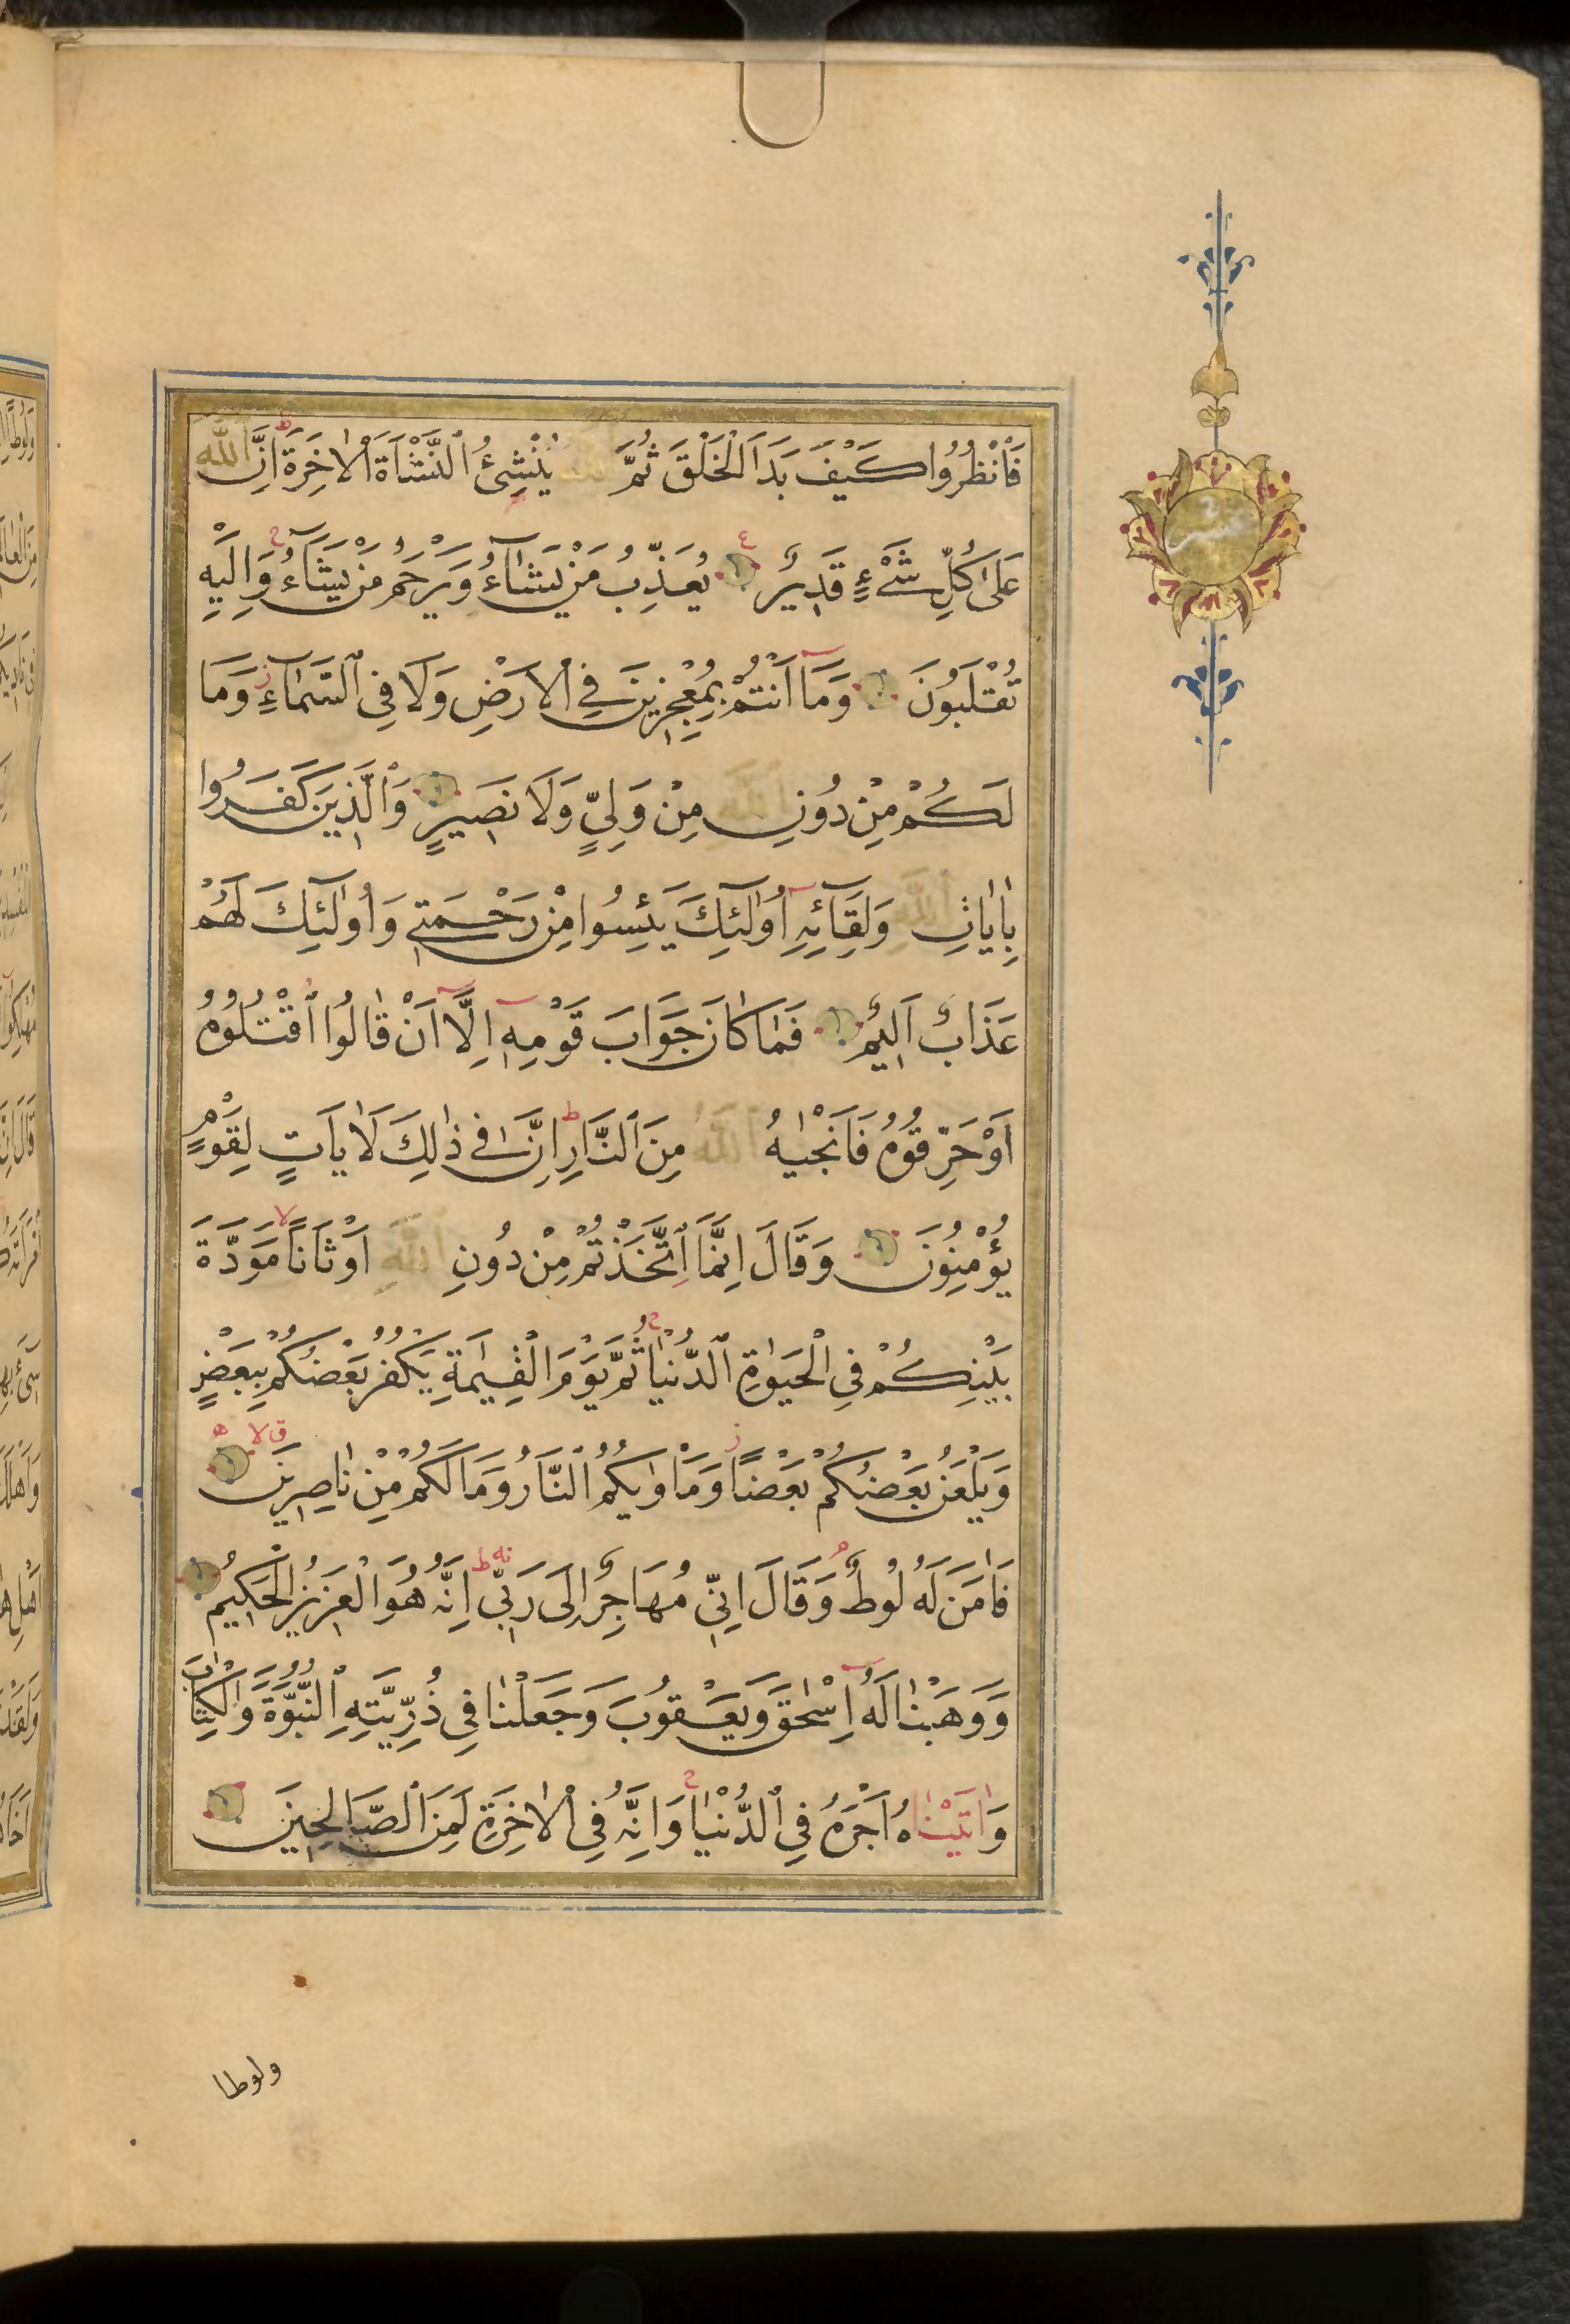 فَانْظُرُوا كَيْفَ بَدَاَ الْخَلْقَ ثُمَّ اللّٰهُ يُنْشِئُ النَّشْاَةَ الْاٰخِرَةَ ط اِنَّ اللّٰهَ
عَلٰى كُلِّ شَىْءٍ قَدِيرٌ يُعَذِّبُ مَنْ يَشَٓاءُ وَيَرْحَمُ مَنْ يَشَٓاءُ ج وَاِلَيْهِ
تُقْلَبُونَ وَمَٓا اَنْتُمْ بِمُعْجِزِينَ فِى الْاَرْضِ وَلَا فِى السَّمَٓاءِ ز وَمَا
لَكُمْ مِنْ دُونِ اللّٰهِ مِنْ وَلِىٍّ وَلَا نَصِيرٍ وَالَّذِينَ كَفَرُوا
بِاٰيَاتِ اللّٰهِ وَلِقَٓائِهِ اُولٰٓئِكَ يَئِسُوا مِنْ رَحْمَتِى وَاُولٰٓئِكَ لَهُمْ
عَذَابٌ اَلِيمٌ فَمَا كَانَ جَوَابَ قَوْمِهِ اِلَّٓا اَنْ قَالُوا اقْتُلُوهُ
اَوْ حَرِّقُوهُ فَاَنْجٰيهُ اللّٰهُ مِنَ النَّارِ ط اِنَّ فِى ذٰلِكَ لَاٰيَاتٍ لِقَوْمٍ
يُؤْمِنُونَ وَقَالَ اِنَّمَا اتَّخَذْتُمْ مِنْ دُونِ اللّٰهِ اَوْثَانًا لا مَوَدَّةَ
بَيْنِكُمْ فِى الْحَيٰوةِ الدُّنْيَا ج ثُمَّ يَوْمَ الْقِيٰمَةِ يَكْفُرُ بَعْضُكُمْ بِبَعْضٍ
وَيَلْعَنُ بَعْضُكُمْ بَعْضًا ز وَمَاْوٰيكُمُ النَّارُ وَمَا لَكُمْ مِنْ نَاصِرِينَ
فَاٰمَنَ لَهُ لُوطٌ م وَقَالَ اِنِّى مُهَاجِرٌ اِلٰى رَبِّى ط اِنَّهُ هُوَ الْعَزِيزُ الْحَكِيمُ
وَوَهَبْنَا لَهُٓ اِسْحٰقَ وَيَعْقُوبَ وَجَعَلْنَا فِى ذُرِّيَّتِهِ النُّبُوَّةَ وَالْكِتَابَ
وَاٰتَيْنَاهُ اَجْرَهُ فِى الدُّنْيَا ج وَاِنَّهُ فِى الْاٰخِرَةِ لَمِنَ الصَّالِحِينَ
ولوطا